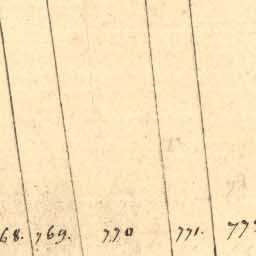 68. 769. 770 771. 77